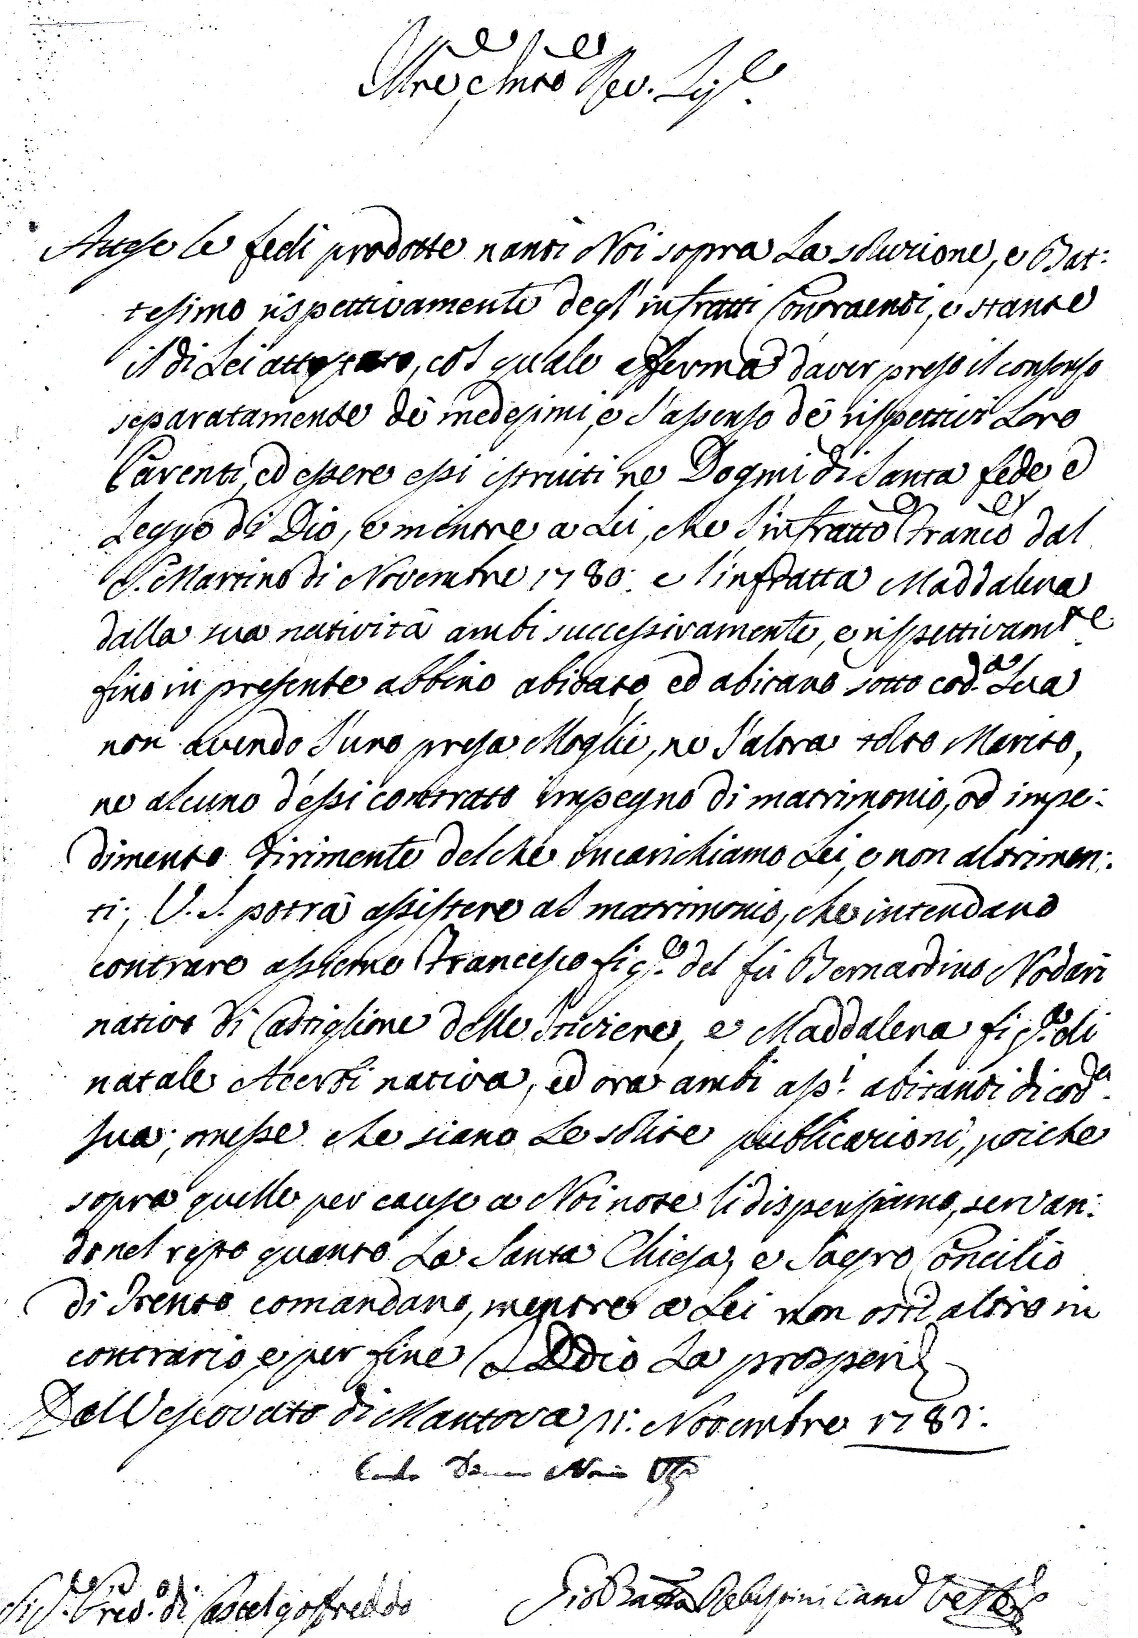 Ill.re, e Molto Rev. Sig.e
Attese le fedi prodotte nanti Noi sopra la soluzione, e Bat:
tesimo rispettivamente degl'infratti Contraenti, e stante
il di Lei attestato, col quale afferma d'aver preso il consenso
separatamente dè medesimi, e l'assenso dè rispettivi Loro
Parenti, ed essere essi istruiti ne Dogmi di Santa fede, e
Legge di Dio, e mentre a Lei, che l'infratto Fran.co dal
S. Martino di Novembre 1780: e l'infratta Maddalena
dalla sua natività ambi successivamente, e rispettivam.te
fino in presente abbino abitato, ed abitano sotto cod.a Sua
non avendo l'uno presa Moglie, ne l'altra tolto Marito,
ne alcuno d'essi contratto impegno di matrimonio, od impe:
dimento dirimente del che incarichiamo Lei, e non altrimen:
ti; V. S. potrà assistere al matrimonio, che intendano
contrare assieme Francesco fig.o del fù Bernardino Nodari
nativo di Castiglione delle Stiviere, e Maddalena fig.a di
natale Acerbi nativa, ed ora ambi ass.i abitanti di cod.a
sua; omesse che siano Le solite publicazioni, poiche
sopra quelle per cause a Noi note li dispensiamo, servan:
do nel resto quanto La Santa Chiesa, e Sagro Concilio
di Trento comandano, mentre a Lei non osti altro in
contrario, e per fine Iddio La prosperi
Dal Vescovato di Mantova 11: Novembre 1787:
Sig.r Pred.o di Castelgoffredo
Gio Batta Canc.